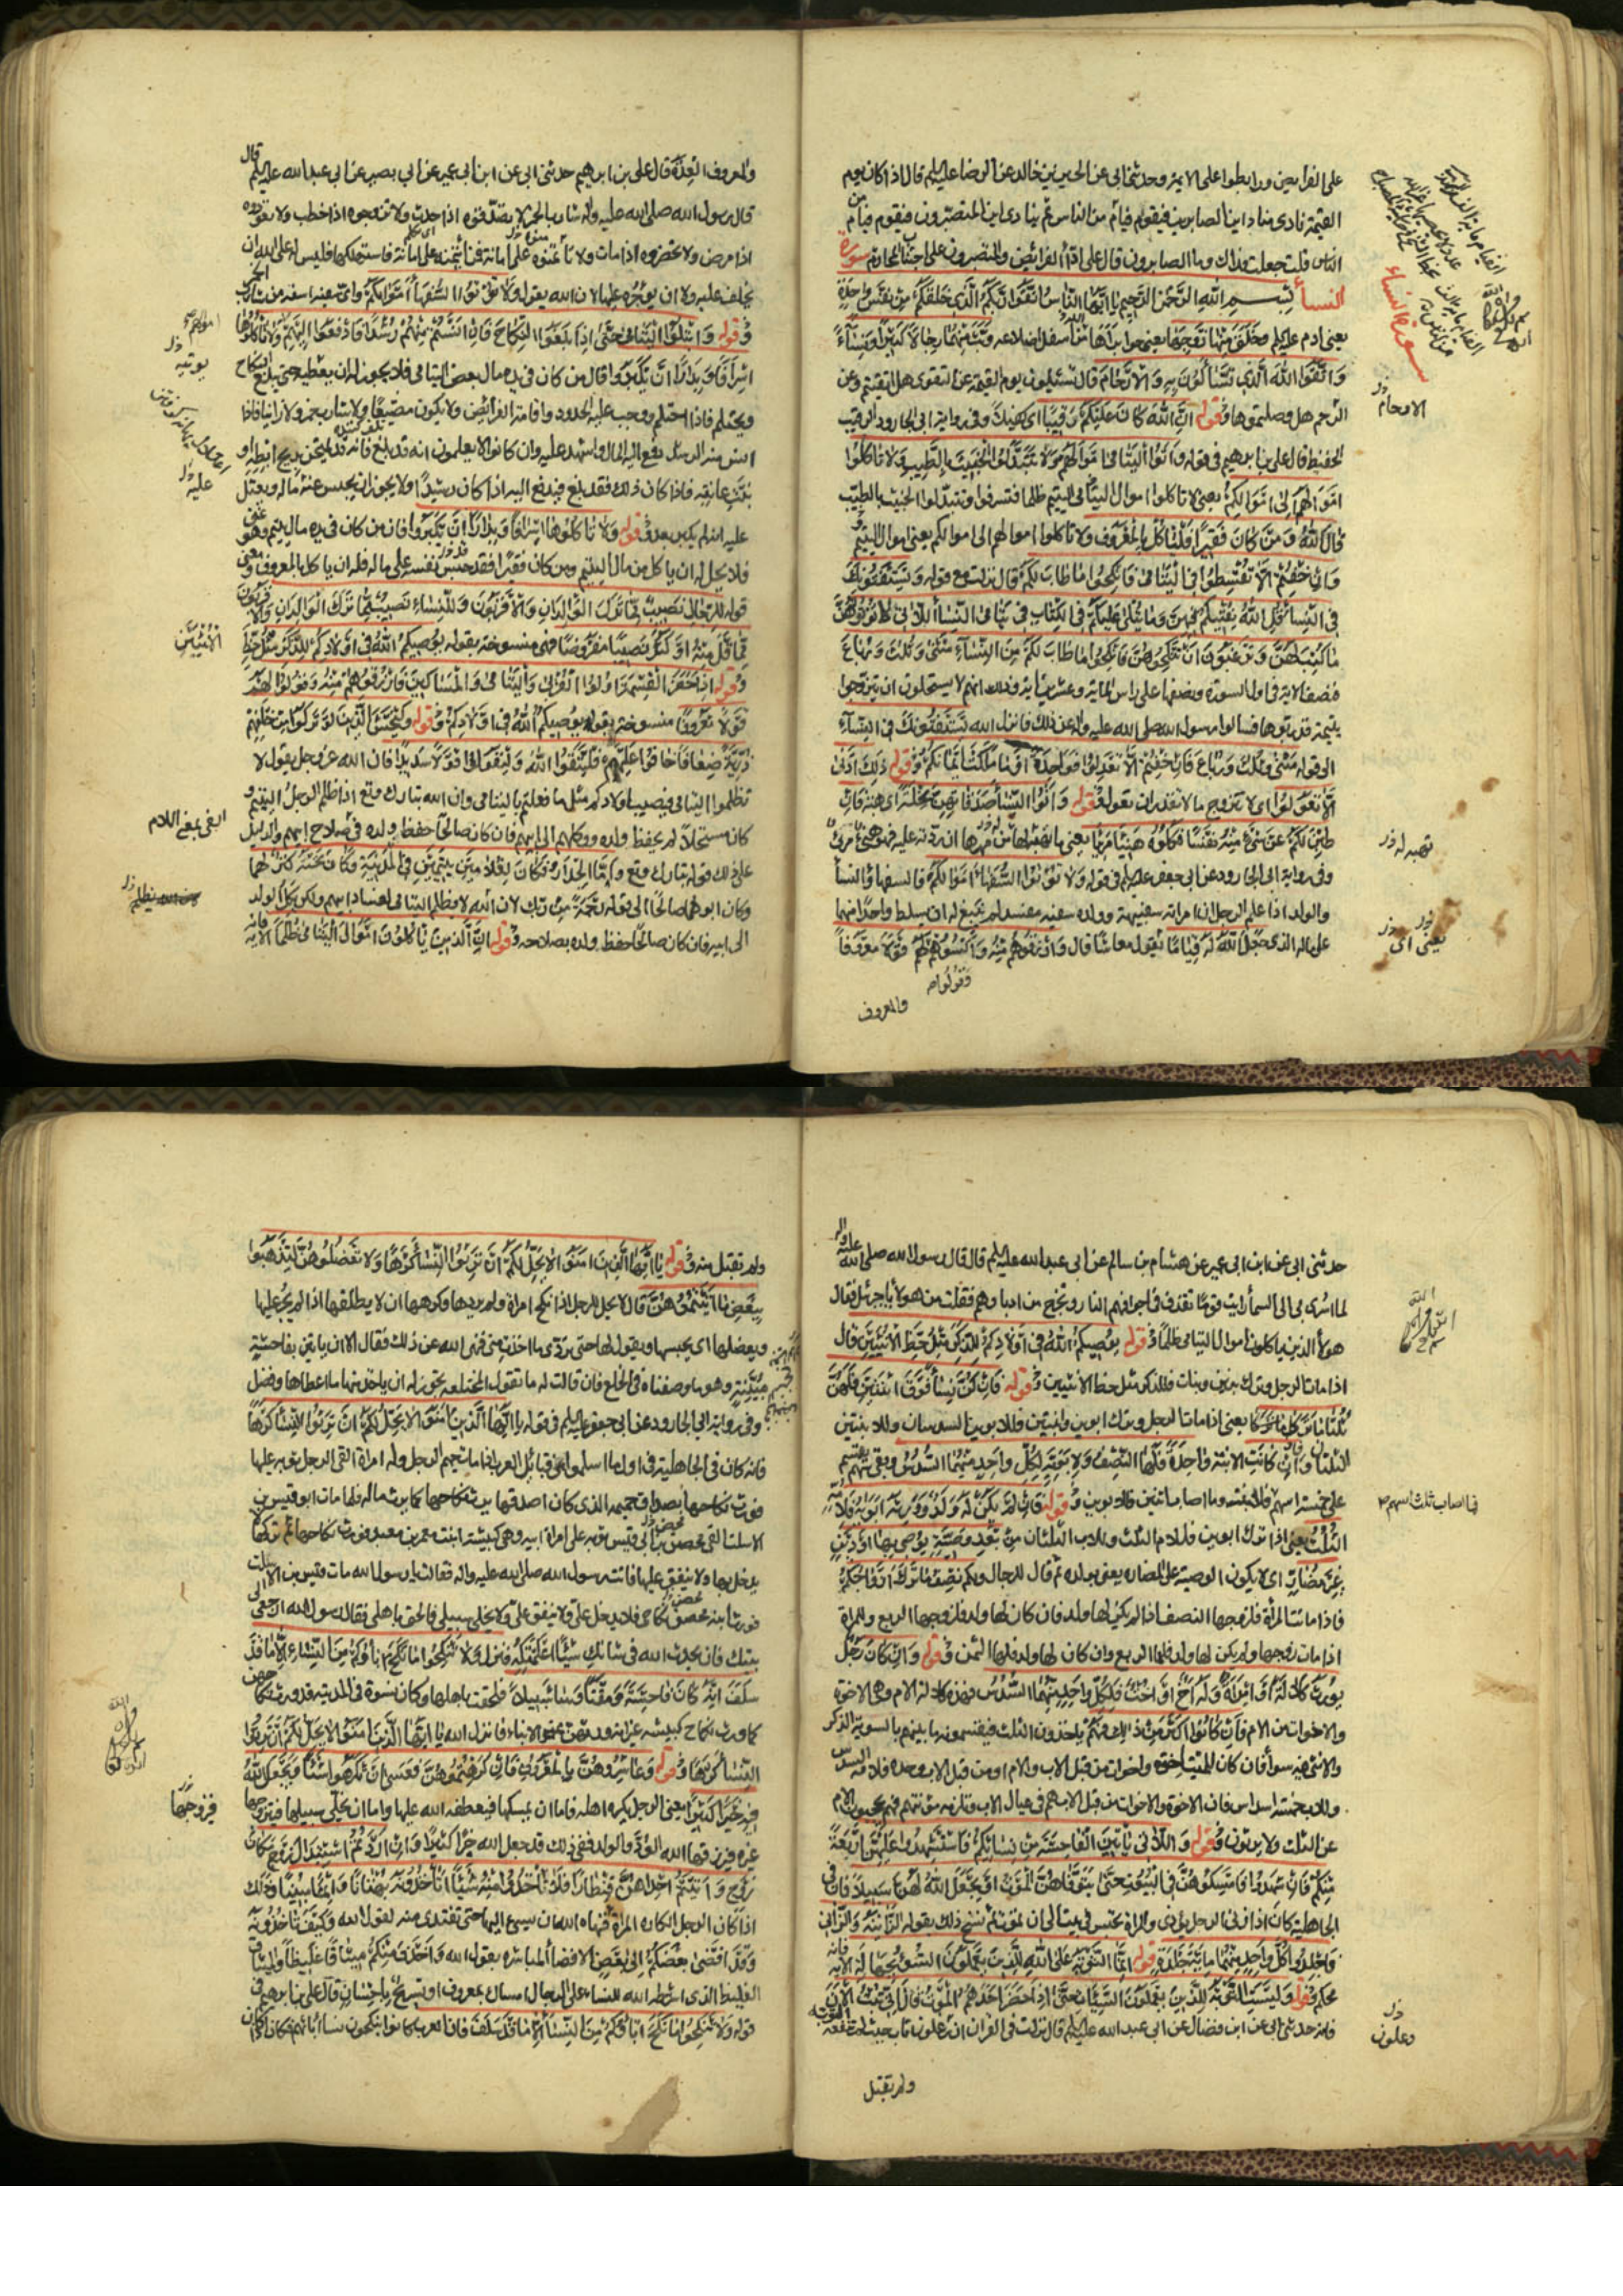 على الفرايض ورابطوا على الائمة وحدثنى ابى عن الحسن بن خالد عن الرضا عليه السلم قال اذا كان يوم
القيمة نادى مناد اين الصابرون فيقوم فيام من الناس ثم ينادى اين المتصبرون فيقوم فيام من
الناس قلت جعلت فداك وما الصابرون قال على اداء الفرائض والمتصبرون على اجتناب المحارم سورة
النساء بِسْمِ اللهِ الرَّحْمنِ الرَّحيم يَا اَيُّهَا النَّاسُ اتَّقُوا رَبَّكُمُ الَّذِى خَلَقَكُمْ مِنْ نَفْسٍ واحِدَةٍ
يعنى ادم عليه السلم وَخَلَقَ مِنْهَا زَوْجَهَا يعنى حوا براها الله من اسفل اضلاعه وَبَثَّ مِنْهُمَا رِجَالاً كَثِيرًا وَنِسَاءً
وَاتَّقُوا اللهَ الَّذى تَسَّاءَلُونَ بِهِ وَالْاَرْحَامَ قال تسئلون يوم القيمة عن التقوى هل اتقيتم وعن
الرحم هل وصلتموها وقوله اِنَّ اللهَ كَانَ عَلَيْكُمْ رَقِيبًا اى كفيلا وفى رواية ابى الجارود الرقيب
الحفيظ قال على بن ابرهيم فى قوله وَآتُوا الْيَتَامى اَمْوَالَهُمْ وَلَا تَتَبَدَّلُوا الْخَبِيثَ بِالطَّيِّبِ وَلَا تَاكُلُوا
اَمْوَالَهُمْ اِلَى اَمْوَالِكُمْ يعنى لا تاكلوا اموال اليتامى ظلما فتسرفوا وتتبدلوا الخبيث بالطيب
قال الله وَمَنْ كَانَ فَقِيرًا فَلْيَاكُلْ بِالْمَعْرُوفِ ولا تاكلوا اموالهم الى اموالكم يعنى اموال اليتيم
وَاِنْ خِفْتُمْ اَلَّا تُقْسِطُوا فِى الْيَتَامى فَانْكِحُوا مَا طَابَ لَكُمْ قال نزلت مع قوله وَيَسْتَفْتُونَكَ
فِى النِّسَاءِ قُلِ اللهُ يُفْتِيكُمْ فِيهِنَّ وَمَا يُتْلَى عَلَيْكُمْ فِى الْكِتَابِ فِى يَتَامَى النِّسَاءِ اللَّاتِى لَا تُؤْتُونَهُنَّ
مَا كُتِبَ لَهُنَّ وَتَرْغَبُونَ اَنْ تَنْكِحُوهُنَّ فَانْكِحُوا مَا طَابَ لَكُمْ مِنَ النِّسَاءِ مَثْنَى وَثُلَاثَ وَرُبَاعَ
فنصف الاية فى اول السورة ونصفها على راس المائة وعشرين اية وذلك انهم لا يستحلون ان يتزوجوا
يتيمة قد ربوها فسالوا رسول الله صلى الله عليه واله عن ذلك فانزل الله يَسْتَفْتُونَكَ فِى النِّسَاءِ
الى قوله مَثْنَى وَثُلَاثَ وَرُبَاعَ فَاِنْ خِفْتُمْ اَلَّا تَعْدِلُوا فَوَاحِدَةً اَوْ مَا مَلَكَتْ اَيْمَانُكُمْ وقوله ذَلِكَ اَدْنَى
اَلَّا تَعُولُوا اى لا يتزوج ما لا تقدران تعولوا وقوله وَآتُوا النِّسَاءَ صَدُقَاتِهِنَّ نِحْلَةً اى هبة فَاِنْ
طِبْنَ لَكُمْ عَنْ شَىْءٍ مِنْهُ نَفْسًا فَكُلُوهُ هَنِيئًا مَرِيئًا يعنى ما تهبه لها من مهرها ان ردته عليه فهو هنىء مرىء
وفى رواية ابى الجارود عن ابى جعفر عليه السلم فى قوله وَلَا تُؤْتُوا السُّفَهَاءَ اَمْوَالَكُمُ فالسفهاء النساء
والولد اذا علم الرجل ان امراته سفيهة وولده سفيه مفسد لم ينبغ له ان يسلط واحدا منهما
على ماله الذى جَعَلَ اللهُ لَهُ قِيَامًا يقول معاشا قال وَارْزُقُوهُمْ مِنْهُ وَاكْسُوهُمْ لَهُمْ قَوْلًا مَعْرُوفًا
وَقُولُوا
والمعروف
سورة النساء
الارحام
تهبه له
يعنى
والمعروف العدة قال على بن ابرهيم حدثنى ابى عن ابن ابى عمير عن ابى بصير عن ابى عبد الله عليه السلم قال
قال رسول الله صلى الله عليه واله شارب الخمر لا تصدقوه اذا حدث ولا تزوجوه اذا خطب ولا تعودوه
اذا مرض ولا تحضروه اذا مات ولا تاتمنوه على امانة فمن ائتمنه على امانة فاستهلكها فليس له على الله ان
يخلف عليه ولا ان يوجره عليها لان الله يقول وَلَا تُؤْتُوا السُّفَهَاءَ اَمْوَالَكُمُ واى سفيه اسفه من شارب الخمر
وقوله وَابْتَلُوا الْيَتَامَى حَتَّى اِذَا بَلَغُوا النِّكَاحَ فَاِنْ آنَسْتُمْ مِنْهُمْ رُشْدًا فَادْفَعُوا اِلَيْهِمْ وَلَا تَاكُلُوهَا
اِسْرَافًا وَبِدَارًا اَنْ يَكْبَرُوا قال من كان فى يده مال بعض اليتامى فلا يجوز له ان يعطيه حتى يبلغ النكاح
ويحتلم فاذا احتلم وجب عليه الحدود واقامة الفرايض ولا يكون مضيعا ولا شارب خمر ولا زانيا فاذا
انس منه الرشد دفع اليه المال واشهد عليه وان كانوا لا يعلمون انه قد بلغ فانه يمتحن بريح ابطه او
نبت عانته فاذا كان ذلك فقد بلغ فيدفع اليه اذا كان رشيدا ولا يجوز ان يحبس عنه ماله ويعتل
عليه انه لم يكبر بعد وقوله وَلَا تَاكُلُوهَا اِسْرَافًا وَبِدَارًا اَنْ يَكْبَرُوا فان من كان فى يده مال يتيم وهو غنى
فلا يحل له ان ياكل من مال اليتيم ومن كان فقيرا فقد حبس نفسه على ماله فله ان ياكل بالمعروف ومعنى
قوله لِلرِّجَالِ نَصِيبٌ مِمَّا تَرَكَ الْوَالِدَانِ وَالْاَقْرَبُونَ وَلِلنِّسَاءِ نَصِيبٌ مِمَّا تَرَكَ الْوَالِدَانِ وَالْاَقْرَبُونَ
مِمَّا قَلَّ مِنْهُ اَوْ كَثُرَ نَصِيبًا مَفْرُوضًا فهى منسوخة بقوله يُوصِيكُمُ اللهُ فِى اَوْلَادِكُمْ لِلذَّكَرِ مِثْلُ حَظِّ
وقوله اِذَا حَضَرَ الْقِسْمَةَ اُولُوا الْقُرْبَى وَالْيَتَامَى وَالْمَسَاكِينُ فَارْزُقُوهُمْ مِنْهُ وَقُولُوا لَهُمْ
قَوْلًا مَعْرُوفًا منسوخة بقوله يُوصِيكُمُ اللهُ فِى اَوْلَادِكُمْ وقوله وَلْيَخْشَ الَّذِينَ لَوْ تَرَكُوا مِنْ خَلْفِهِمْ
ذُرِّيَّةً ضِعَافًا خَافُوا عَلَيْهِمْ فَلْيَتَّقُوا اللهَ وَلْيَقُولُوا قَوْلًا سَدِيدًا فان الله عز وجل يقول لا
تظلموا اليتامى فيصيب اولادكم مثل ما فعلتم باليتامى وان الله تبارك وتع اذا ظلم الرجل اليتيم و
كان مستحلا لم يحفظ ولده ووكلهم الى ابيهم فان كان صالحا حفظ ولده فى صلاح ابيهم والدليل
على ذلك قوله تبارك وتع وَاَمَّا الْجِدَارُ فَكَانَ لِغُلَامَيْنِ يَتِيمَيْنِ فِى الْمَدِينَةِ وَكَانَ تَحْتَهُ كَنْزٌ لَهُمَا
وكان ابوهما صالحا الى قوله رَحْمَةً مِنْ رَبِّكَ لان الله لا يظلم اليتامى لفساد ابيهم ولكن يكل الولد
الى ابيه فان كان صالحا حفظ ولده بصلاحه وقوله اِنَّ الَّذِينَ يَاكُلُونَ اَمْوَالَ الْيَتَامَى ظُلْمًا الاية
اموالهم
يوتيه
عليه
الْاُنْثَيَيْنِ
ابقى بمعنى اللام
يظلم
حدثنى ابى عن ابن ابى عمير عن هشام بن سالم عن ابى عبد الله عليه السلم قال قال رسول الله صلى الله عليه واله
لما اسرى بى الى السماء رايت قوما تقذف فى اجوافهم النار وتخرج من ادبارهم فقلت من هولاء يا جبرئيل فقال
هولاء الذين ياكلون اموال اليتامى ظلما وقوله يُوصِيكُمُ اللهُ فِى اَوْلَادِكُمْ لِلذَّكَرِ مِثْلُ حَظِّ الْاُنْثَيَيْنِ قال
اذا مات الرجل وترك بنين وبنات فللذكر مثل حظ الانثيين وقوله فَاِنْ كُنَّ نِسَاءً فَوْقَ اثْنَتَيْنِ فَلَهُنَّ
ثُلُثَا مَا تَرَكَ يعنى اذا مات الرجل وترك ابوين وابنتين فللابوين السدسان وللابنتين
الثلثان وَاِنْ كانَتِ الابنة وَاحِدَةً فَلَهَا النِّصْفُ وَلِاَبَوَيْهِ لِكُلِّ وَاحِدٍ مِنْهُمَا السُّدُسُ وبقى سهم يقسم
على خمسة اسهم فللابنة وما اصاب اثنين فللابوين وقوله فَاِنْ لَمْ يَكُنْ لَهُ وَلَدٌ وَوَرِثَهُ اَبَوَاهُ فَلِاُمِّهِ
الثُّلُثُ يعنى اذا ترك ابوين فللام الثلث وللاب الثلثان مِنْ بَعْدِ وَصِيَّةٍ يُوصِى بِهَا اَوْ دَيْنٍ
غَيْرَ مُضَارٍّ اى لا يكون الوصية على المضارة يعنى بولده ثم قال للرجال وَلَكُمْ نِصْفُ مَا تَرَكَ اَزْوَاجُكُمْ
فاذا ماتت المراة فلزوجها النصف اذا لم يكن لها ولد فان كان لها ولد فلزوجها الربع وللمراة
اذا مات زوجها ولم يكن لها ولد فلها الربع وان كان لها ولد فلها الثمن وقوله وَاِنْ كَانَ رَجُلٌ
يُورَثُ كَلَالَةً اَوِ امْرَاَةٌ وَلَهُ اَخٌ اَوْ اُخْتٌ فَلِكُلِّ وَاحِدٍ مِنْهُمَا السُّدُسُ فهذه كلالة الام وهى الاخوة
والاخوات من الام فَاِنْ كَانُوا اَكْثَرَ مِنْ ذَلِكَ فهم ياخذون الثلث فيقتسمونه بينهم بالسوية الذكر
والانثى فيه سواء فان كان للميت اخوة واخوات من قبل الاب والام او من قبل الاب وحده فلامه السدس
وللاب خمسة اسداس فان الاخوة والاخوات من قبل الاب هم فى عيال الاب وتلزمه مؤنتهم فهم يحجبون الام
عن الثلث ولا يرثون وقوله وَاللَّاتِى يَاتِينَ الْفَاحِشَةَ مِنْ نِسَائِكُمْ فَاسْتَشْهِدُوا عَلَيْهِنَّ اَرْبَعَةً
مِنْكُمْ فَاِنْ شَهِدُوا فَاَمْسِكُوهُنَّ فِى الْبُيُوتِ حَتَّى يَتَوَفَّاهُنَّ الْمَوْتُ اَوْ يَجْعَلَ اللهُ لَهُنَّ سَبِيلًا فان فى
الجاهلية كان اذا زنى الرجل يؤذى والمراة تحبس فى بيت الى ان تموت ثم نسخ ذلك بقوله الزَّانِيَةُ وَالزَّانِى
فَاجْلِدُوا كُلَّ وَاحِدٍ مِنْهُمَا مِائَةَ جَلْدَةٍ وقوله اِنَّمَا التَّوْبَةُ عَلَى اللهِ لِلَّذِينَ يَعْمَلُونَ السُّوءَ بِجَهَالَةٍ الاية فانه
محكم وقوله وَلَيْسَتِ التَّوْبَةُ لِلَّذِينَ يَعْمَلُونَ السَّيِّئَاتِ حَتَّى اِذَا حَضَرَ اَحَدَهُمُ الْمَوْتُ قَالَ اِنِّى تُبْتُ الْآنَ
فانه حدثنى ابى عن ابن فضال عن ابى عبد الله عليه السلم قال نزلت فى القران ان زعلون تاب حيث لم تنفعه التوبة
ولم تقبل
فما اصاب ثلث اسهم
دعلون
ولم تقبل منه وقوله يَا اَيُّهَا الَّذِينَ آمَنُوا لَا يَحِلُّ لَكُمْ اَنْ تَرِثُوا النِّسَاءَ كَرْهًا وَلَا تَعْضُلُوهُنَّ لِتَذْهَبُوا
بِبَعْضِ مَا آتَيْتُمُوهُنَّ قال لا يحل للرجل اذا نكح امراة ولم يردها وكرهها ان لا يطلقها اذا لم يجر عليها
ويعضلها اى يحبسها ويقول لها حتى تودى ما اخذت منى فنهى الله عن ذلك فقال الا ان ياتين بفاحشة
مُبَيِّنَةٍ وهو ما وصفناه فى الخلع فان قالت له ما تقول المختلعة يجوز له ان ياخذ منها ما اعطاها وفضل
وفى رواية ابى الجارود عن ابى جعفر عليه السلم فى قوله يَا اَيُّهَا الَّذِينَ آمَنُوا لَا يَحِلُّ لَكُمْ اَنْ تَرِثُوا النِّسَاءَ كَرْهًا
فانه كان فى الجاهلية فى اول ما اسلموا من قبائل العرب اذا مات حميم الرجل وله امراة القى الرجل ثوبه عليها
فورث نكاحها بصداق حميمه الذى كان اصدقها يرث نكاحها كما يرث ماله فلما مات ابو قيس بن
الاسلت القى محصن بن ابى قيس ثوبه على امراة ابيه وهى كبيشة ابنت معمر بن معبد فورث نكاحها ثم تركها
يدخل بها ولا ينفق عليها فاتت رسول الله صلى الله عليه واله فقالت يا رسول الله مات قيس بن الاسلت
فورث ابنه محصن نكاحى فلا يدخل على ولا ينفق على ولا يخلى سبيلى فالحق باهلى فقال رسول الله ارجعى الى
بيتك فان يحدث الله فى شانك شيئا اعلمتكه فنزل وَلَا تَنْكِحُوا مَا نَكَحَ آبَاؤُكُمْ مِنَ النِّسَاءِ اِلَّا مَا قَدْ
سَلَفَ اِنَّهُ كَانَ فَاحِشَةً وَمَقْتًا وَسَاءَ سَبِيلًا فلحقت باهلها وكان نسوة فى المدينة قد ورث نكاحهن
كما ورث نكاح كبيشة غير انه ورثهن عن الابناء فانزل الله يَا اَيُّهَا الَّذِينَ آمَنُوا لَا يَحِلُّ لَكُمْ اَنْ تَرِثُوا
النِّسَاءَ كَرْهًا وقوله وَعَاشِرُوهُنَّ بِالْمَعْرُوفِ فَاِنْ كَرِهْتُمُوهُنَّ فَعَسَى اَنْ تَكْرَهُوا شَيْئًا وَيَجْعَلَ اللهُ
فِيهِ خَيْرًا كَثِيرًا يعنى الرجل يكره اهله فاما ان يمسكها فيعطفه الله عليها واما ان يخلى سبيلها فيتزوجها
غيره فيرزقها الله الود والولد ففى ذلك قد جعل الله خيرا كثيرا وَاِنْ اَرَدْتُمُ اسْتِبْدَالَ زَوْجٍ مَكَانَ
زَوْجٍ وَآتَيْتُمْ اِحْدَاهُنَّ قِنْطَارًا فَلَا تَاْخُذُوا مِنْهُ شَيْئًا اَتَاْخُذُونَهُ بُهْتَانًا وَاِثْمًا مُبِينًا وذلك
اذا كان الرجل الكاره المراة فنهاه الله ان يسىء اليها حتى تفتدى منه يقول الله وَكَيْفَ تَاْخُذُونَهُ
وَقَدْ اَفْضَى بَعْضُكُمْ اِلَى بَعْضٍ الافضاء المباشرة يقول الله وَاَخَذْنَ مِنْكُمْ مِيثَاقًا غَلِيظًا والميثاق
الغليظ الذى اشترط الله للنساء على الرجال امساك بمعروف او تسريح باحسان قال على بن ابرهيم فى
قوله وَلَا تَنْكِحُوا مَا نَكَحَ آبَاؤُكُمْ مِنَ النِّسَاءِ اِلَّا مَا قَدْ سَلَفَ فان العرب كانوا ينكحون نساء ابائهم فكان اذا كان
فزوجها